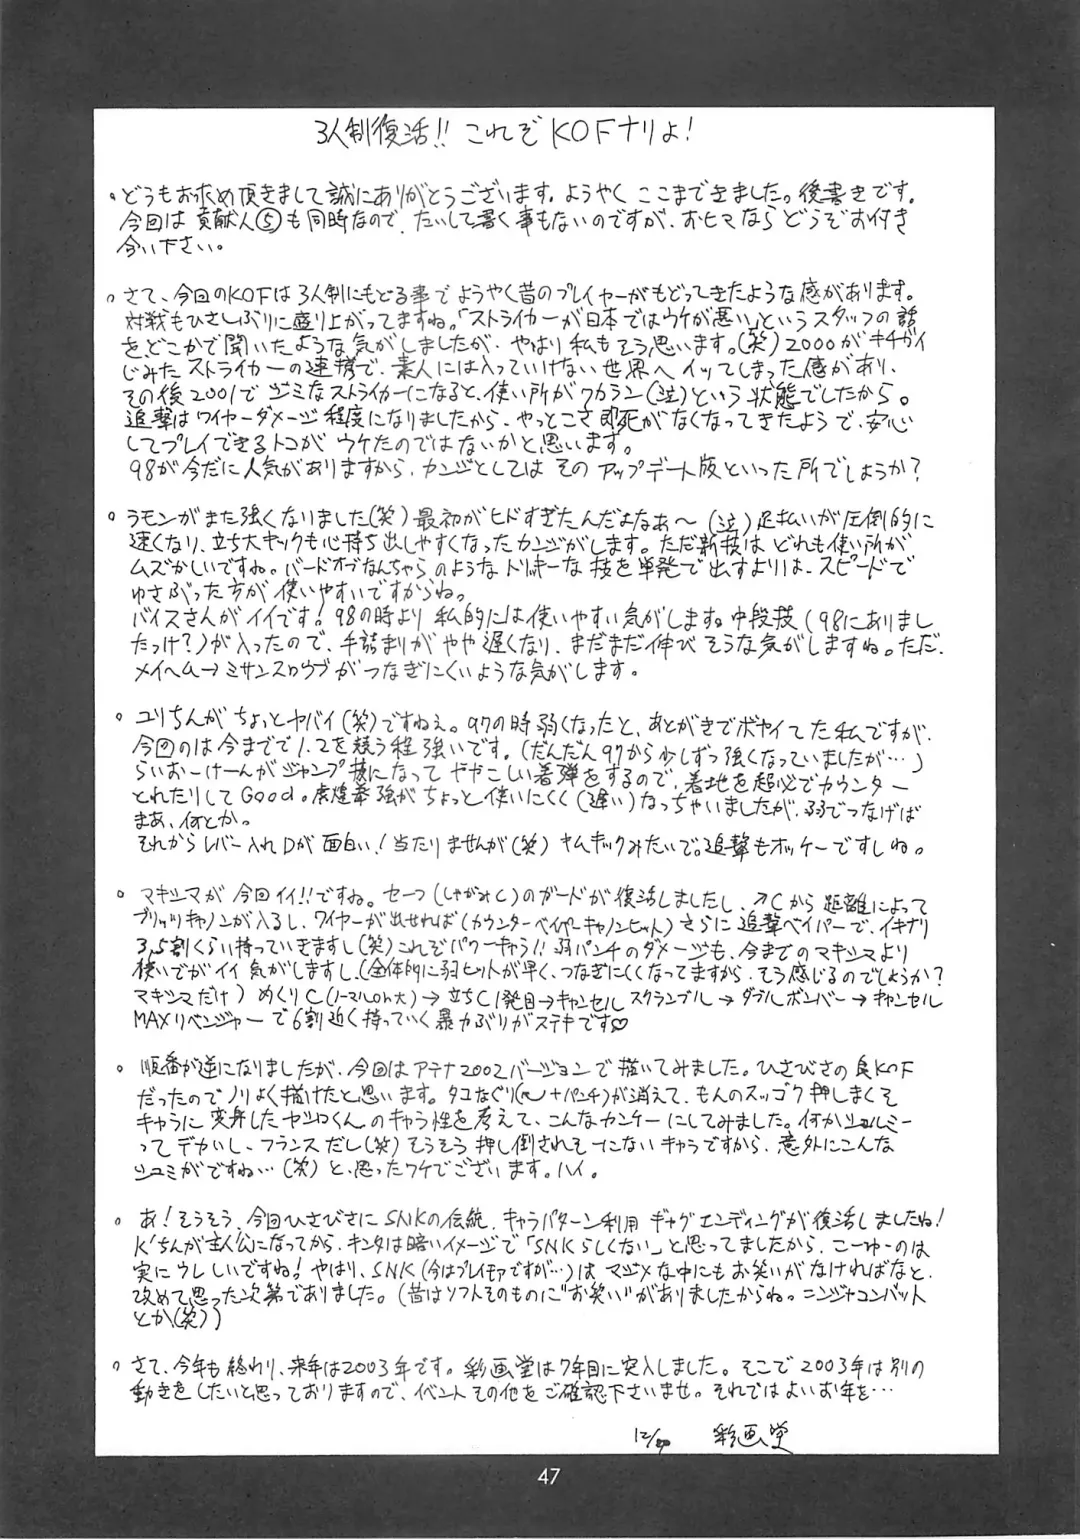 3人制復活!! これぞKOFナリよ!
。どうもお求め頂きまして誠にありがとうございます。ようやく ここまできました。後書きです。
今回は 貢献人⑤も同時なので、たいして書く事もないのですが、おヒマなら どうぞお付き
合い下さい。
。さて、今回のKOFは 3人制にもどる事で ようやく昔のプレイヤーがもどってきたような感があります。
対戦もひさしぶりに盛り上がってますね。「ストライカーが日本ではウケが悪い」というスタッフの話
をどこかで聞いたような気がしましたが、やはり私もそう思います。(笑) 2000がキチガイ
じみた ストライカーの連携で、素人には入っていけない世界へイッてしまった感があり、
その後2001で ジミなストライカーになると、使い所がワカラン(泣)という状態でしたから。
追撃はワイヤーダメージ程度になりましたから、やっとこさ即死がなくなってきたようで、安心
してプレイできるトコが ウケたのではないかと思います。
98が今だに人気がありますから、カンジとしては そのアップデート版といった所でしょうか?
。ラモンがまた強くなりました(笑) 最初がヒドすぎたんだよなあ〜 (泣) 足払いが圧倒的に
速くなり、立ち大キックも心持ち出しやすくなったカンジがします。ただ新技は どれも使い所が
ムズかしいですね。バードオブなんちゃらのようなトリッキーな 技を単発で出すよりは、スピードで
ゆさぶった方が 使いやすいですからね。
バイスさんがイイです! 98の時より 私的には使いやすい気がします。中段技 (98にありまし
たっけ?)が入ったので、手詰まりが やや遅くなり、まだまだ伸びそうな気がしますね。ただ、
メイヘム→ミサンスロウプがつなぎにくいような気がします。
。ユリちんが ちょっとヤバイ(笑)ですねぇ。97の時弱くなったと、あとがきでボヤイてた私ですが、
今回のは今までで1、2を競う程 強いです。(だんだん97から少しずつ強くなっていましたが…)
らいおーけーんがジャンプ技になって ややこしい着弾をするので、着地を超必でカウンター
とれたりしてGood。虎煌拳強がちょっと使いにくく(遅い)なっちゃいましたが、弱でつなげば
まあ、何とか。
それからレバー入れDが 面白い! 当たりませんが(笑) キムキックみたいで。追撃もオッケーですしね。
。マキシマが 今回イイ!!ですね。せーつ(しゃがみC)のガードが復活しましたし、↗Cから 距離によって
ブリッツキャノンが入るし、ワイヤーが出せれば(カウンターベイパーキャノンヒット) さらに追撃ベイパーで、イキナリ
3,5割くらい持っていきますし(笑)これぞパワーキャラ!! 弱パンチのダメージも、今までのマキシマより
使いでがイイ 気がしますし、(全体的に弱ヒットが早く、つなぎにくくなってますから、そう感じるのでしょうか?
マキシマだけ) めくりC(ノーマルor大)→立ちC1発目→キャンセル スクランブル→ダブルボンバー→キャンセル
MAXリベンジャーで6割近く持っていく暴力ぶりがステキです♡
。順番が逆になりましたが、今回はアテナ2002バージョンで描いてみました。ひさびさの良KOF
だったのでノリよく描けたと思います。タコなぐり(+パンチ)が消えて、もんのスッゴク押しまくる
キャラに変身したヤツロくんのキャラ性を考えて、こんなカンケーにしてみました。何かシェルミー
ってデカいし、フランスだし(笑) そうそう押し倒されそーにないキャラですから、意外にこんな
シュミがですね…(笑) と、思ったワケでございます。ハイ。
。あ! そうそう、今回ひさびさにSNKの伝統、キャラパターン利用ギャグエンディングが復活しましたね!
K'ちんが主人公になってから、キンタは暗いイメージで「SNKらしくない」と思ってましたから、こーゆーのは
実にウレしいですね! やはり、SNK(今はプレイモアですが…)は マジメな中にもお笑いがなければなと、
改めて思った次第でありました。(昔はソフトそのものに"お笑い"がありましたからね。ニンジャコンバット
とか(笑))
。さて、今年も終わり、来年は2003年です。彩画堂は7年目に突入しました。そこで2003年は別の
動きをしたいと思っておりますので、イベントその他をご確認下さいませ。それではよいお年を…
彩画堂
47